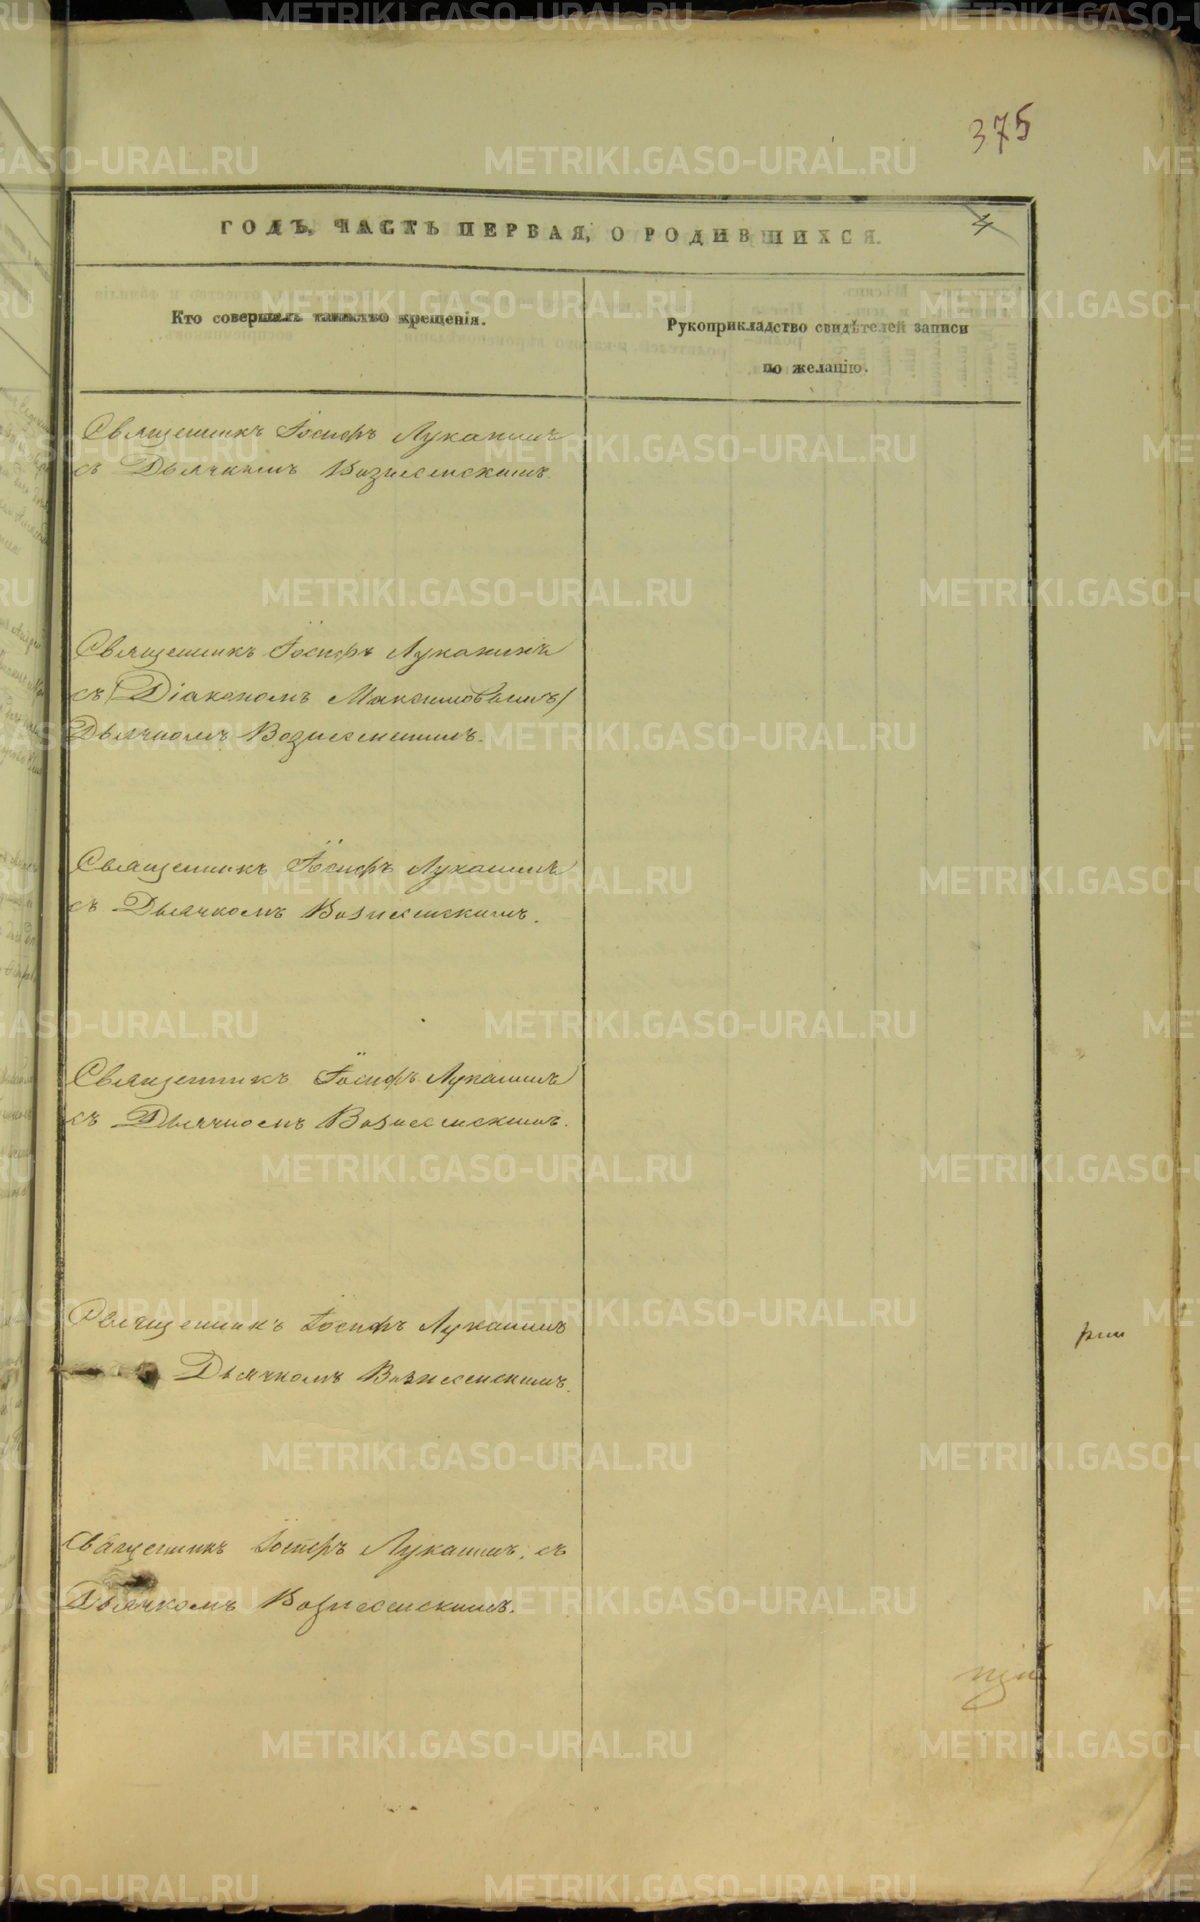 375
ГОДЪ, ЧАСТЬ ПЕРВАЯ, О РОДИВШИХСЯ.
4
Кто совершалъ таинство крещенія.
Рукоприкладство свидѣтелей записи
по желанію.
Священникъ Іосифъ Луканинъ
съ Дьячкомъ Вознесенскимъ.
Священникъ Іосифъ Луканинъ
съ (Діакономъ Максимовымъ)
Дьячкомъ Вознесенскимъ.
Священникъ Іосифъ Луканинъ
съ Дьячкомъ Вознесенскимъ.
Священникъ Іосифъ Луканинъ
съ Дьячкомъ Вознесенскимъ.
Священникъ Іосифъ Луканинъ
Дьячкомъ Вознесенскимъ.
Священникъ Іосифъ Луканинъ, съ
Дьячкомъ Вознесенскимъ.
METRIKI.GASO-URAL.RU